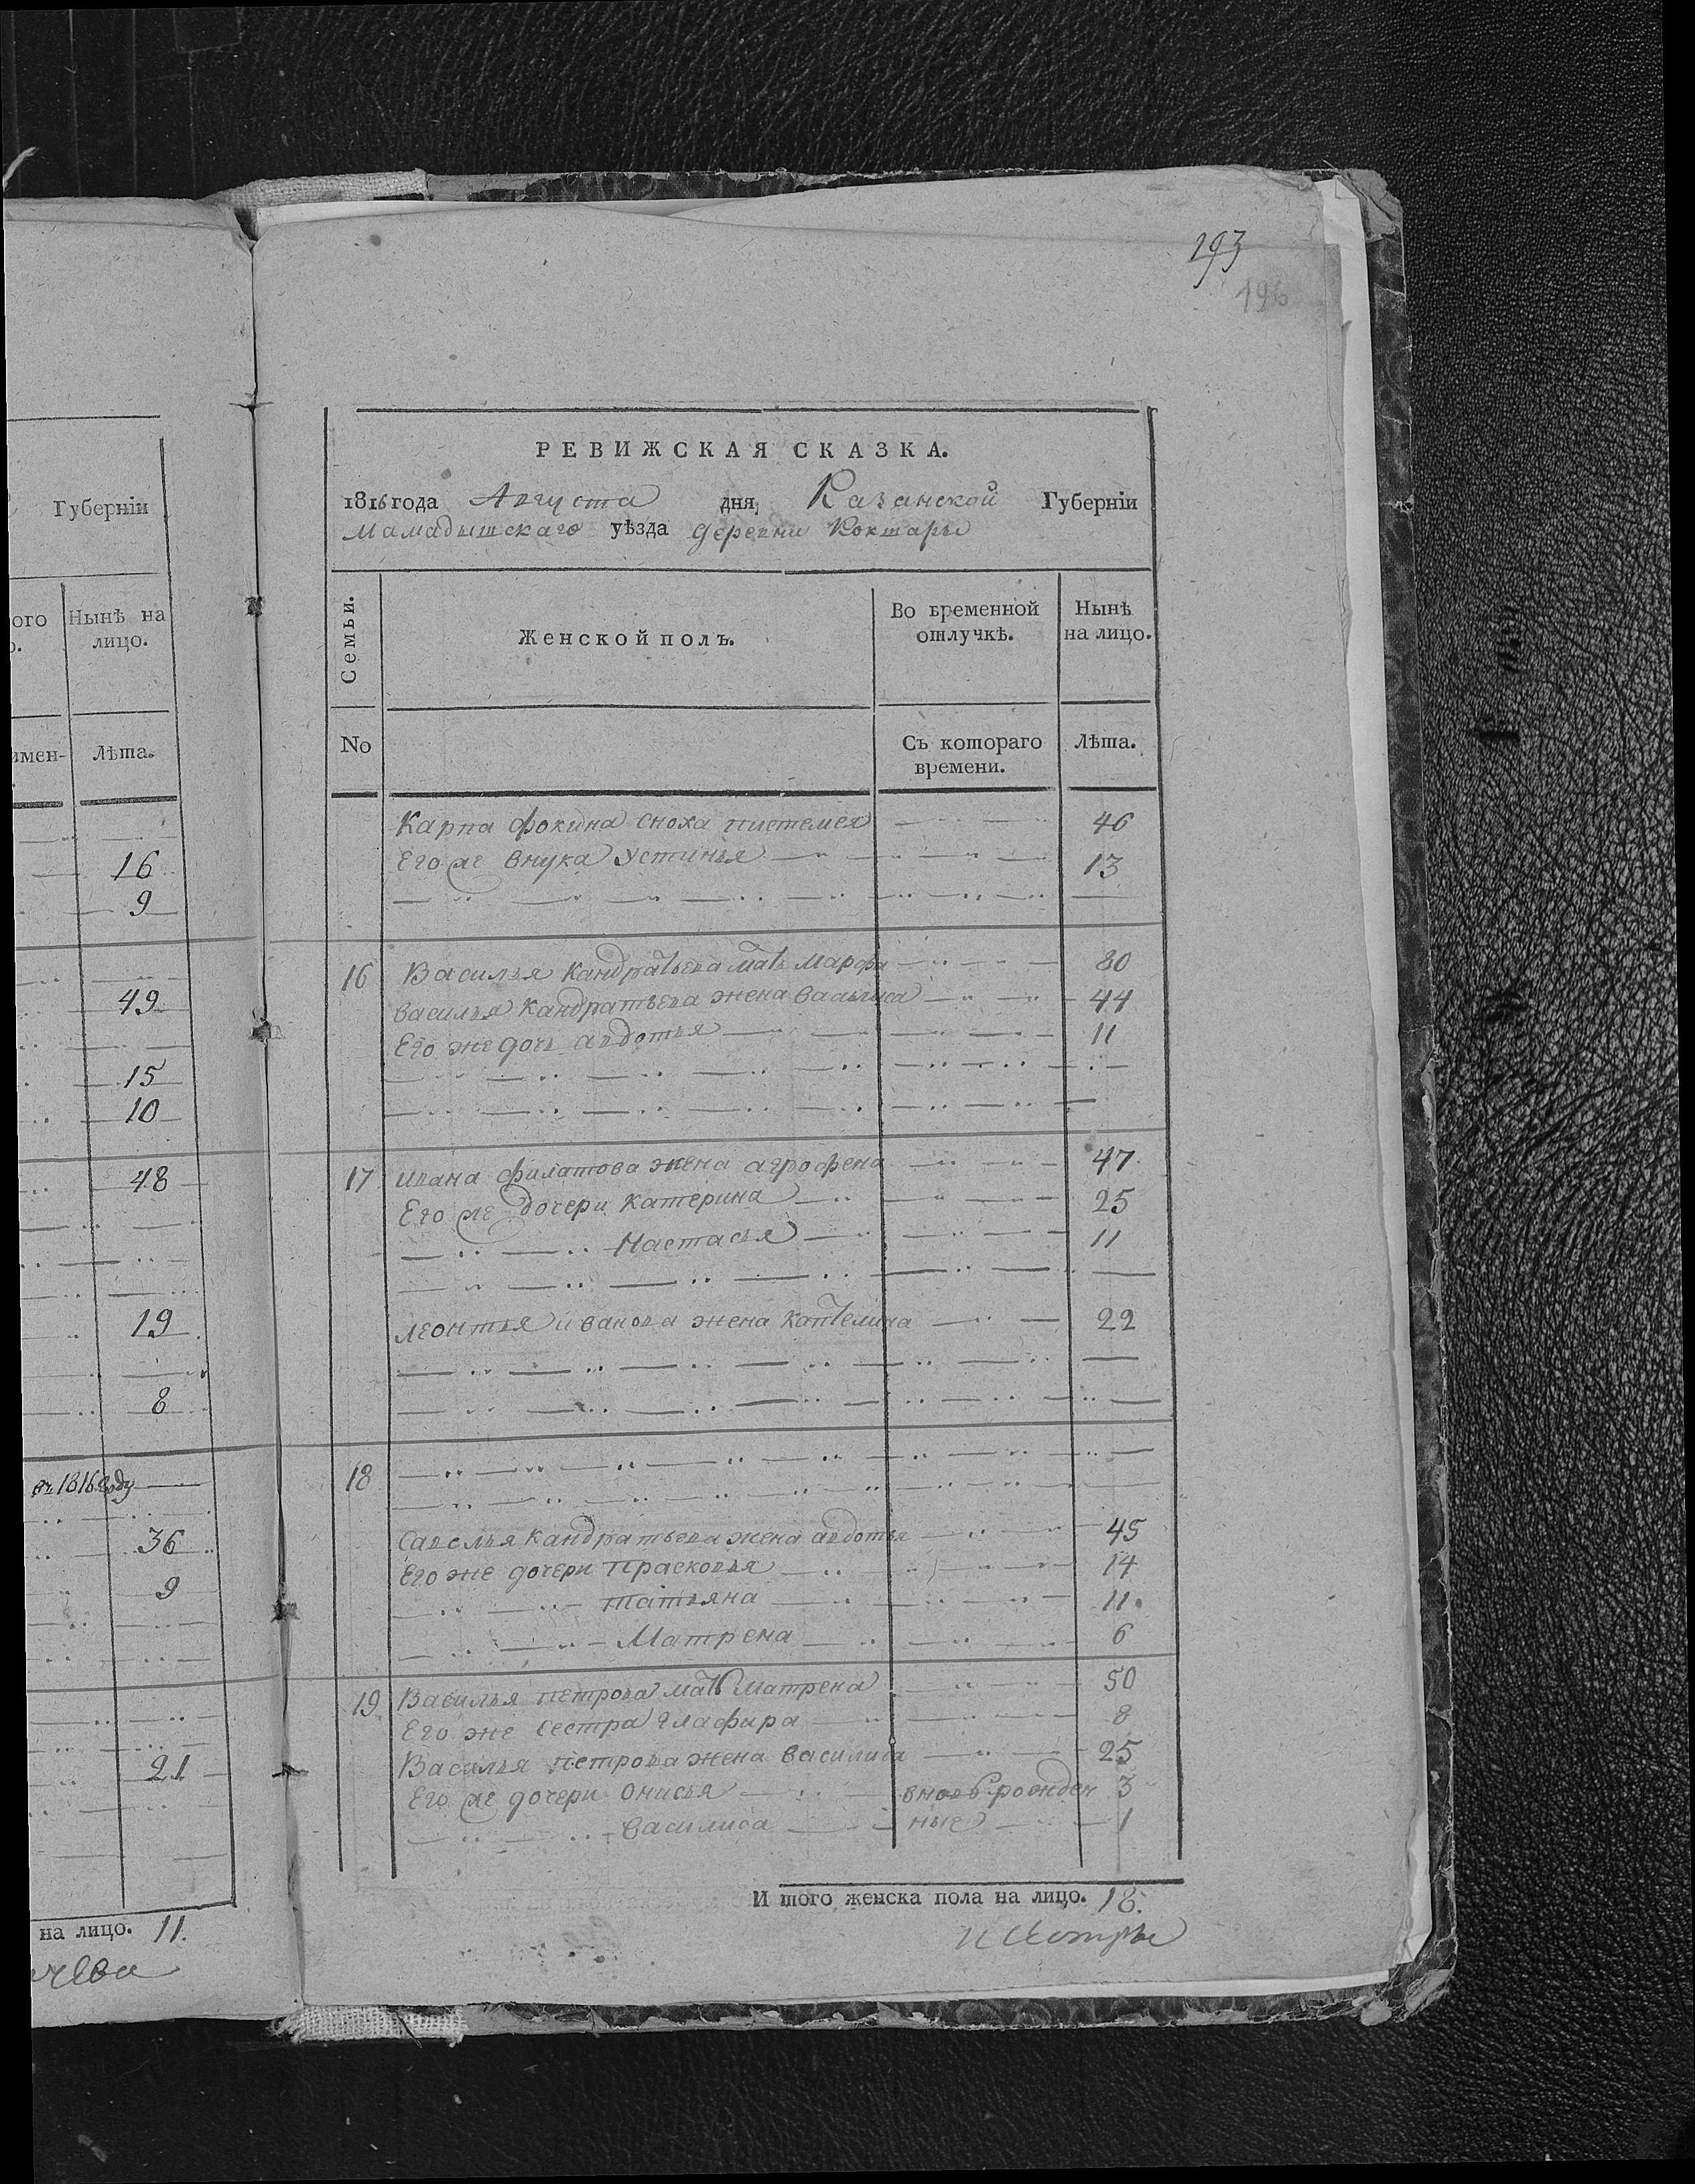 193
196
Губернїи
ого
Нынѣ на
лицо.
имен-
Лѣта.
16
9
49
15
10
48
19
8
въ 1816 году
36
9
21
на лицо. 11.
РЕВИЖСКАЯ СКАЗКА.
1816 года Августа дня, Казанской Губернїи
Мамадышскаго уѣзда деревни Коктары
Семьи.
Женской полъ.
Во временной
отлучкѣ.
Нынѣ
на лицо.
No
Съ котораго
времени.
Лѣта.
Карпа Фокина сноха пистемея 46
Его же внука Устинья 13
16 Василья Кандратьева мать Марфа 80
Василья Кандратьева жена Василиса 44
Его же дочь авдотья 11
17 Ивана Филатова жена агрофена 47
Его же дочери Катерина 25
Настасья 11
Леонтья Иванова жена Каптелина 22
18
Савелья Кандратьева жена авдотья 45
Его же дочери Прасковья 14
Татьяна 11
Матрена 6
19 Василья петрова мать Матрена 50
Его же сестра глафира 8
Василья петрова жена василиса 25
Его же дочери Онисья вновь рожден 3
василиса ные 1
И того женска пола на лицо. 18.